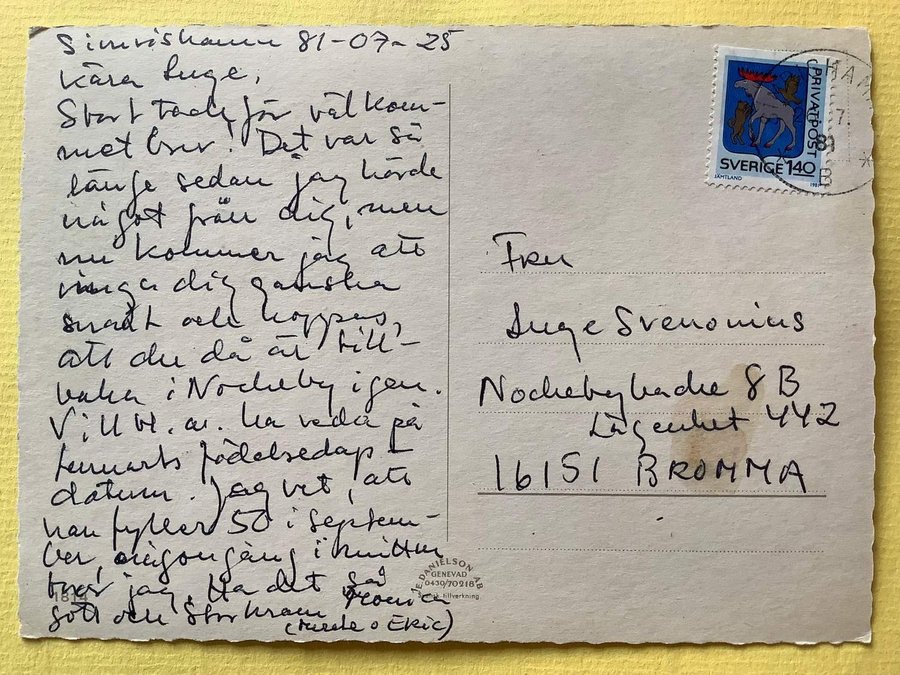 Simrishamn 81-07-25
Kära Inge,
Stort tack för välkom-
met brev! Det var så
länge sedan jag hörde
något från dig, men
nu kommer jag att
ringa dig ganska
snart och hoppas,
att du då är till-
baka i Nockeby igen.
Vill bl.a. ha reda på
Lennarts födelsedag-
datum. Jag vet, att
han fyller 50 i septem-
ber, någongång i mitten
tror jag. Ha det så
gott och Stor kram
( o Eric)
HAM
7.
81
B
PRIVATPOST
SVERIGE 140
JÄMTLAND
Fru
Inge Svenonius
Nockebybacke 8B
Lägenhet 442
16151 BROMMA
J.E. DANIELSON AB
GENEVAD
0430/70218
Svensk tillverkning